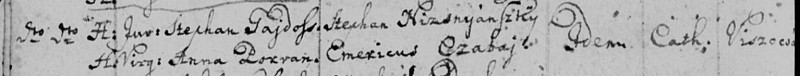 dto dto H: Juv: Stephan Gajdoss. Stephan Nizsnyánszky Idem Cath. Viszocs
H. Virg: Anna Porvan. Emericus Czabaj